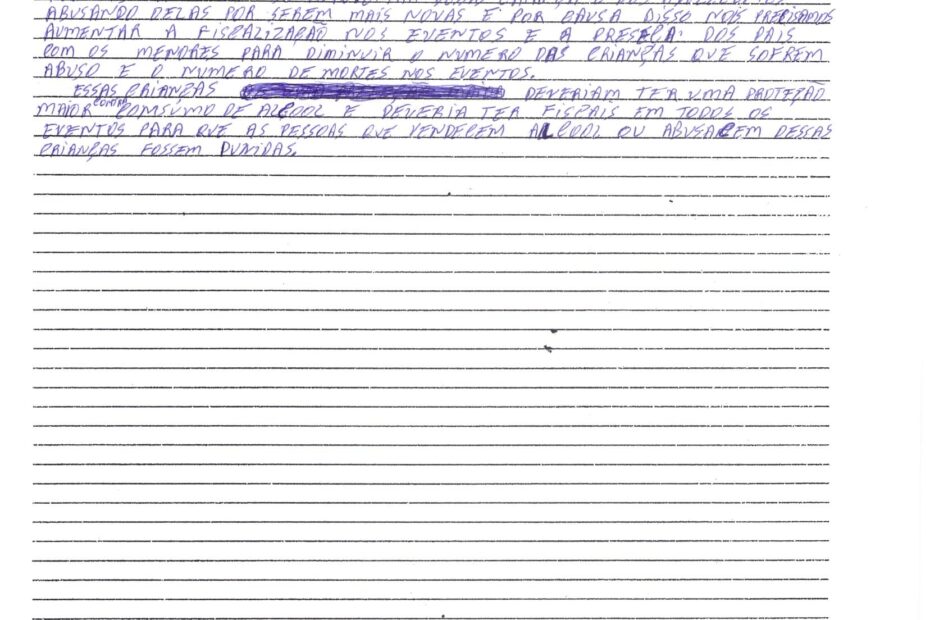 ABUSANDO DELAS POR SEREM MAIS NOVAS E POR CAUSA DISSO NOS PRECISAMOS
AUMENTAR A FISCALIZAÇÃO NOS EVENTOS E A PRESEÇA DOS PAIS
COM OS MENORES PARA DIMINUIR O NUMERO DAS CRIANÇAS QUE SOFREM
ABUSO E O NUMERO DE MORTES NOS EVENTOS.
ESSAS CRIANÇAS DEVERIAM TER UMA PROTEÇÃO
MAIOR CONTRA CONSÚMO DE ALCOOL E DEVERIA TER FISCAIS EM TODOS OS
EVENTOS PARA QUE AS PESSOAS QUE VENDEREM ALCOOL OU ABUSAREM DESSAS
CRIANÇAS FOSSEM PUNIDAS.